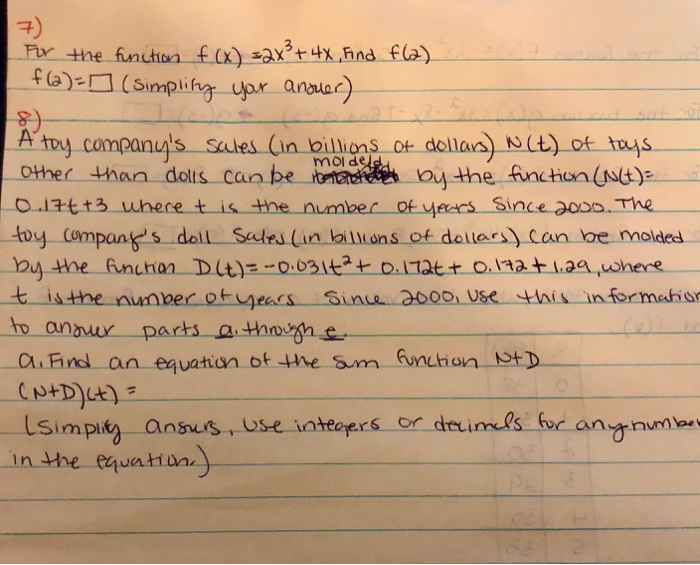 7)
For the function f(x) =2x³+ 4x, Find f(2)
f(2)=□ (simplify your answer)
8)
A toy company's sales (in billions of dollars) N(t) of toys
other than dolls can be molded by the function (N(t)=
0.17t+3 where t is the number of years since 2000. The
toy company's doll sales (in billions of dollars) can be molded
by the function D(t)= -0.031t²+ 0.172t + 0.172 + 1.29, where
t is the number of years since 2000, use this information
to answer parts a. through e.
a. Find an equation of the sum function N+D
(N+D)(t) =
(simplify answers, use integers or decimals for any number
in the equation.)